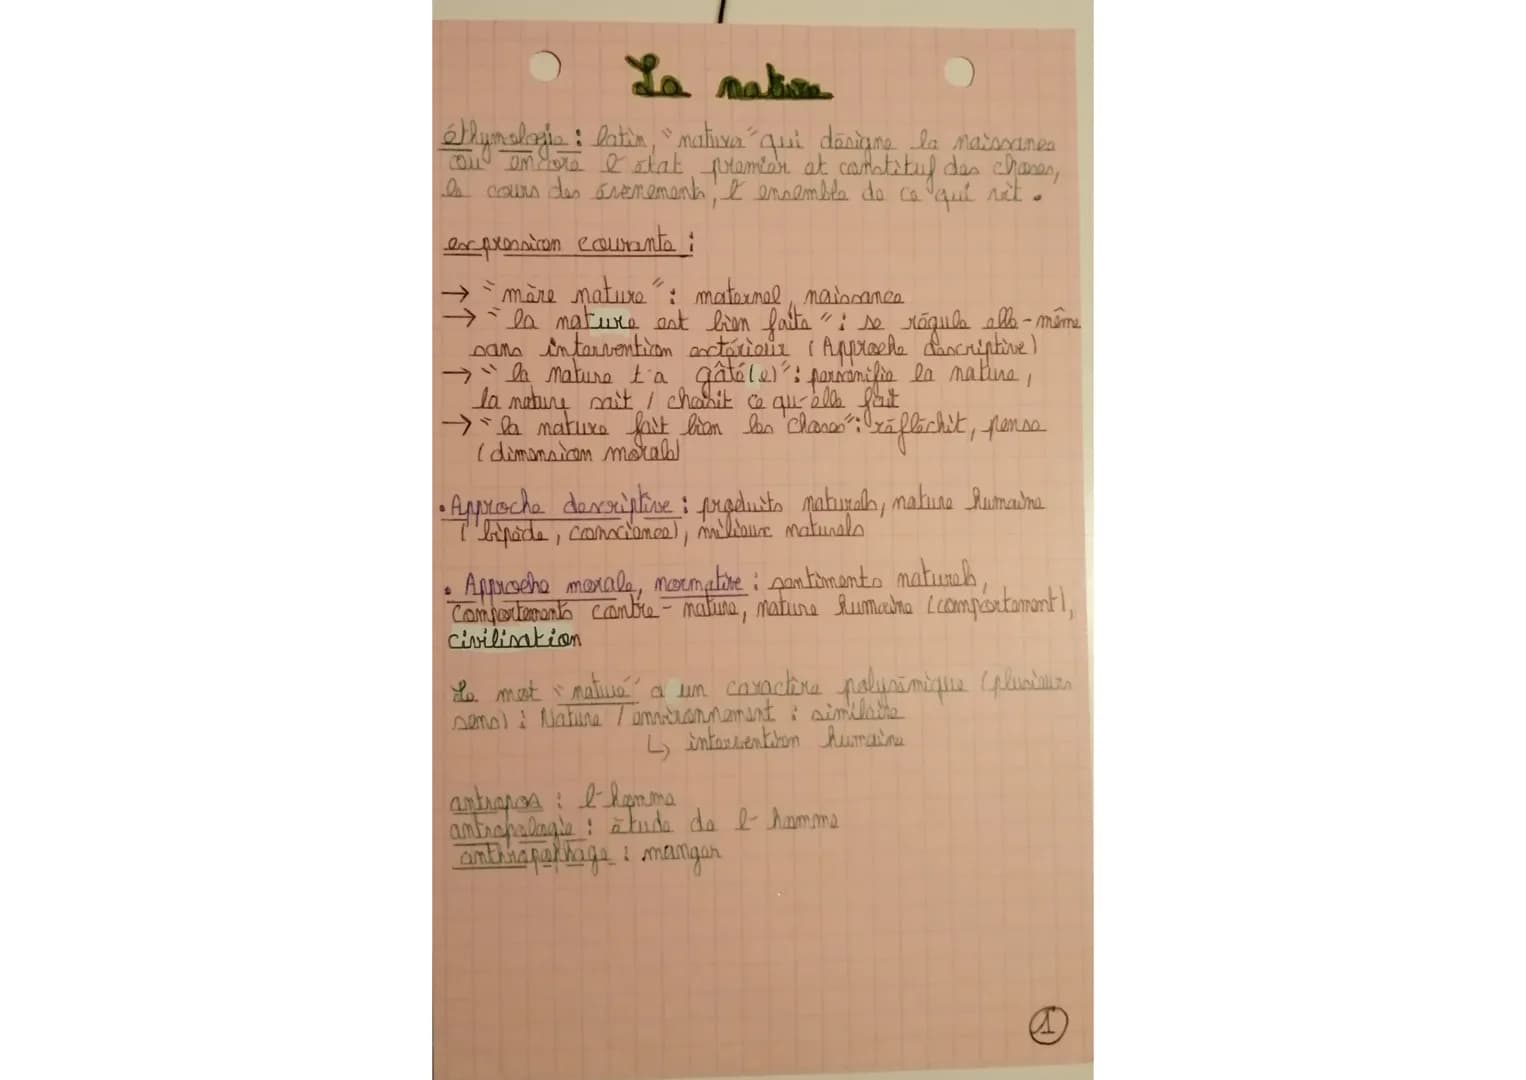 La nature
éthymologie : latin, "natura" qui désigne la naissance
ou encore l'état premier et constitutif des choses,
le cours des évenements, l'ensemble de ce qui vit.
expression courante :
→ "mère nature" : maternel, naissance
→ "la nature est bien faite" : se régule elle-même
sans intervention extérieur (Approche descriptive)
→ "la nature t'a gâté(e)" : personnifie la nature,
la nature sait / choisit ce qu'elle fait
→ "la nature fait bien les choses" : réfléchit, pense
(dimension morale)
• Approche descriptive : produits naturels, nature humaine
(bipède, conscience), milieux naturels
• Approche morale, normative : sentiments naturels,
comportements contre-nature, nature humaine (comportement),
civilisation
Le mot "nature" a un caractère polysémique (plusieurs
sens) : Nature / environnement : similaire
↳ intervention humaine
antropos : l'homme
antropologie : étude de l'homme
anthropophage : manger
1